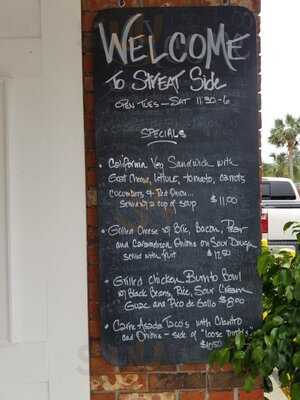 WELCOME
To StrEAT Side
OPEN TUES - SAT 11:30-6
SPECIALS
• California Veg Sandwich with
Goat Cheese, lettuce, tomato, carrots
cucumbers & Red Onion...
Served w/ a cup of soup $11.00
• Grilled Cheese w/ Brie, Bacon, Pear
and Caramelized Onions on Sour Dough
served with fruit $12.50
• Grilled Chicken Burrito Bowl
w/ Black Beans, Rice, Sour Cream
Guac and Pico de Gallo $8.00
• Carne Asada Tacos with Cilantro
and Onions - side of "Loose Beans"
$10.50